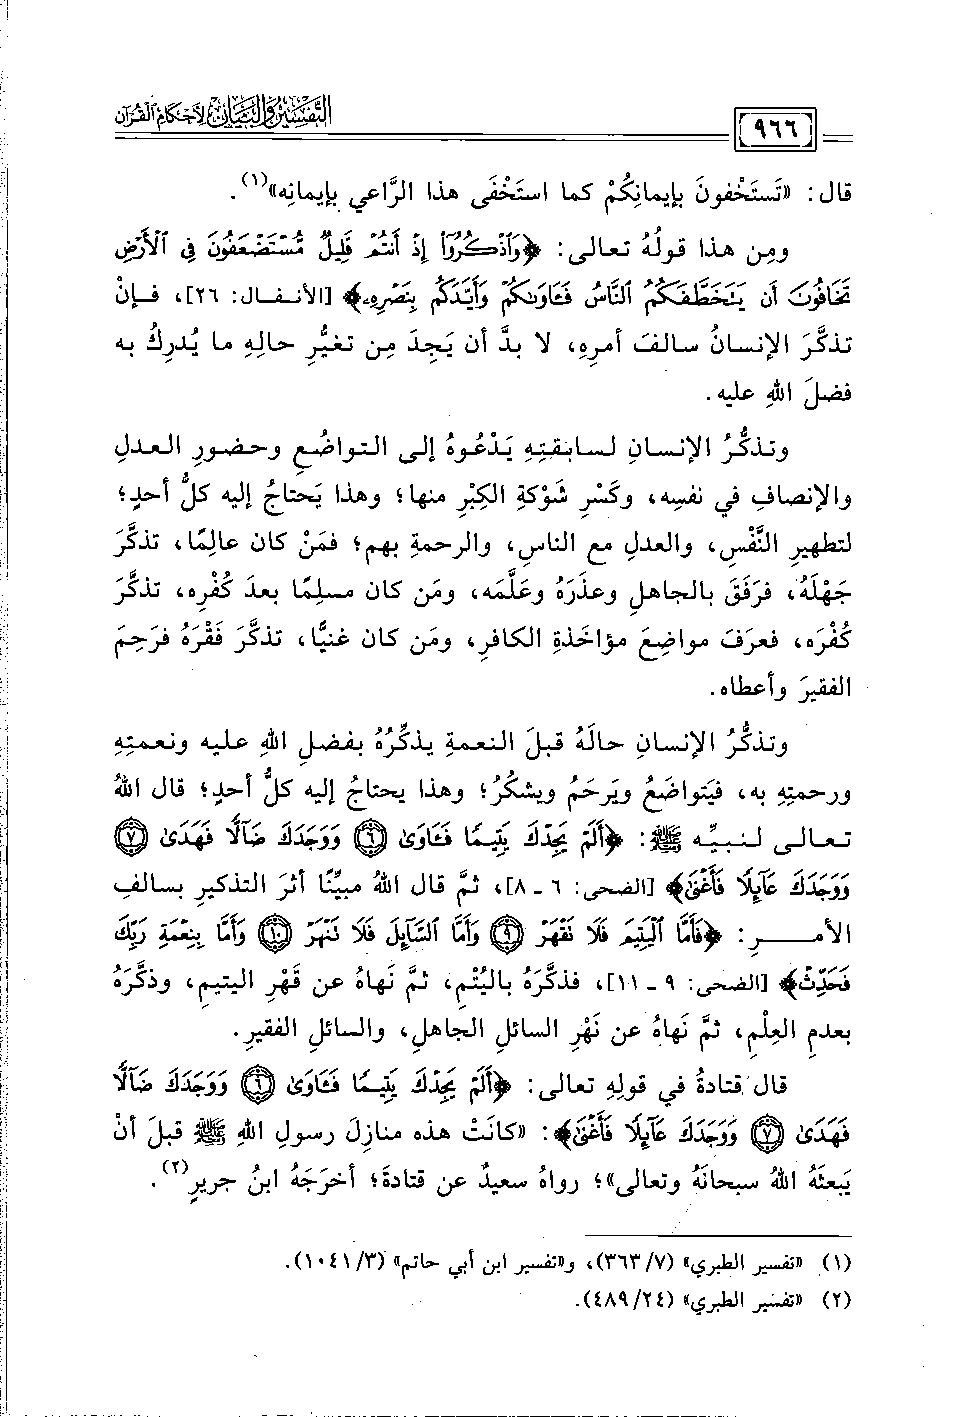 التَّفْسِيرُ وَالبَيَانُ لِأَحْكَامِ القُرْآنِ
٩٦٦
قال: «تَستَخْفونَ بإيمانِكُمْ كما استَخْفَى هذا الرَّاعي بإيمانِه»(١).
ومِن هذا قولُهُ تعالى: ﴿وَاذْكُرُوا إِذْ أَنْتُمْ قَلِيلٌ مُسْتَضْعَفُونَ فِي الْأَرْضِ
تَخَافُونَ أَن يَتَخَطَّفَكُمُ النَّاسُ فَـَٔاوَىٰكُمْ وَأَيَّدَكُم بِنَصْرِهِۦ﴾ [الأنفال: ٢٦]، فإنْ
تذكَّرَ الإنسانُ سالفَ أمرِهِ، لا بدَّ أن يَجِدَ مِن تغيُّرِ حالِهِ ما يُدرِكُ به
فضلَ اللهِ عليه.
وتذكُّرُ الإنسانِ لسابقتِهِ يَدْعُوهُ إلى التواضُعِ وحضورِ العدلِ
والإنصافِ في نفسِه، وكَسْرِ شَوْكةِ الكِبْرِ منها؛ وهذا يَحتاجُ إليه كلُّ أحدٍ؛
لتطهيرِ النَّفْسِ، والعدلِ مع الناسِ، والرحمةِ بهم؛ فمَنْ كان عالِمًا، تذكَّرَ
جَهْلَهُ، فرَفَقَ بالجاهلِ وعذَرَهُ وعَلَّمَه، ومَن كان مسلِمًا بعدَ كُفْرِه، تذكَّرَ
كُفْرَه، فعرَفَ مواضِعَ مؤاخَذةِ الكافرِ، ومَن كان غنيًّا، تذكَّرَ فَقْرَهُ فرَحِمَ
الفقيرَ وأعطاه.
وتذكُّرُ الإنسانِ حالَهُ قبلَ النعمةِ يذكِّرُهُ بفضلِ اللهِ عليه ونعمتِهِ
ورحمتِهِ به، فيَتواضَعُ ويَرحَمُ ويشكُرُ؛ وهذا يحتاجُ إليه كلُّ أحدٍ؛ قال اللهُ
تعالى لنبيِّه ﷺ: ﴿أَلَمْ يَجِدْكَ يَتِيمًا فَـَٔاوَىٰ ٦ وَوَجَدَكَ ضَآلًّا فَهَدَىٰ ٧
وَوَجَدَكَ عَآئِلًا فَأَغْنَىٰ﴾ [الضحى: ٦ ـ ٨]، ثمَّ قال اللهُ مبيِّنًا أثرَ التذكيرِ بسالفِ
الأمـــرِ: ﴿فَأَمَّا الْيَتِيمَ فَلَا تَقْهَرْ ٩ وَأَمَّا السَّآئِلَ فَلَا تَنْهَرْ ١٠ وَأَمَّا بِنِعْمَةِ رَبِّكَ
فَحَدِّثْ﴾ [الضحى: ٩ ـ ١١]، فذكَّرَهُ باليُتْمِ، ثمَّ نَهاهُ عن قَهْرِ اليتيمِ، وذكَّرَهُ
بعدمِ العِلْمِ، ثمَّ نَهاهُ عن نَهْرِ السائلِ الجاهلِ، والسائلِ الفقيرِ.
قال قتادةُ في قولِهِ تعالى: ﴿أَلَمْ يَجِدْكَ يَتِيمًا فَـَٔاوَىٰ ٦ وَوَجَدَكَ ضَآلًّا
فَهَدَىٰ ٧ وَوَجَدَكَ عَآئِلًا فَأَغْنَىٰ﴾: «كانَتْ هذه منازِلَ رسولِ اللهِ ﷺ قبلَ أنْ
يَبعثَهُ اللهُ سبحانَهُ وتعالى»؛ رواهُ سعيدٌ عن قتادةَ؛ أخرَجَهُ ابنُ جريرٍ(٢).
(١) «تفسير الطبري» (٣٦٣/٧)، و«تفسير ابن أبي حاتم» (١٠٤١/٣).
(٢) «تفسير الطبري» (٤٨٩/٢٤).